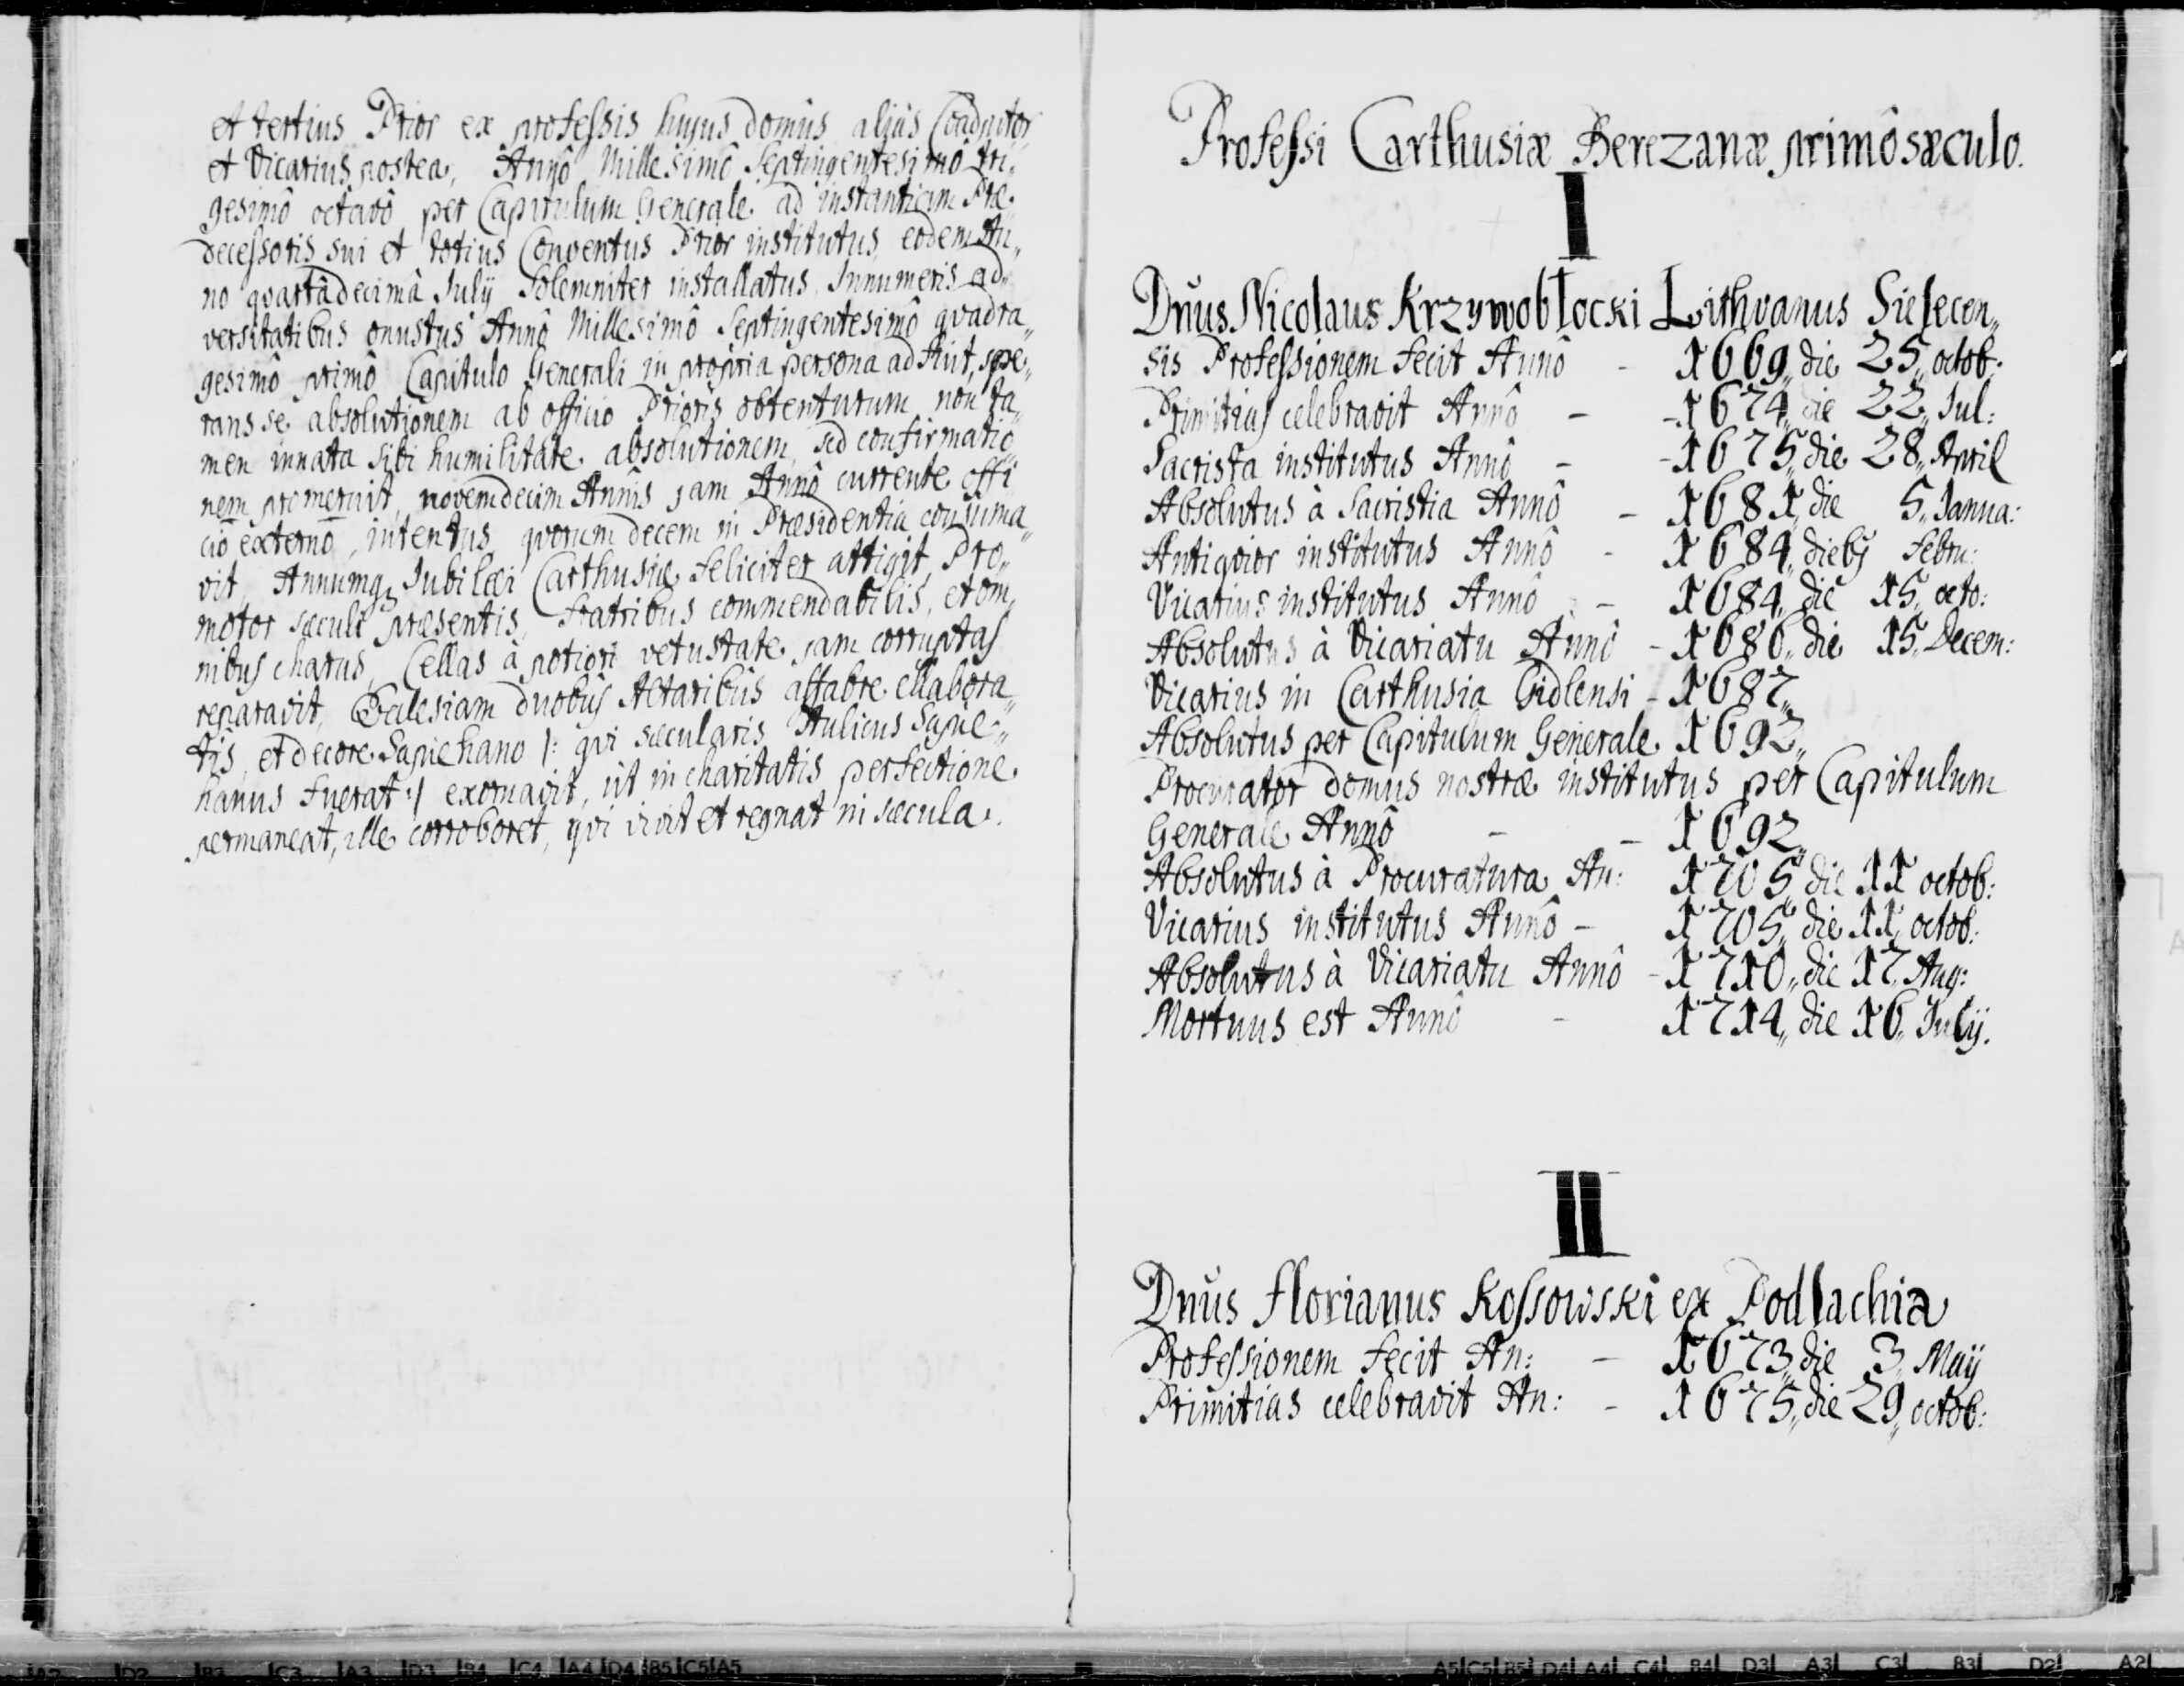 et tertius Prior ex professis hujus domûs aliàs Coadjutor
et Vicarius postea, Annô Millesimô Septingentesimô tri„
gesimô octavô per Capitulum Generale ad instantiam Præ„
decessoris sui et totius Conventûs Prior institutus, eodem An„
no quartâ decimâ Julij Solemniter installatus. Innumeris ad„
versitatibus onustus Annô Millesimô Septingentesimô quadra„
gesimô primô Capitulo Generali in propria persona adfuit, spe„
rans se absolutionem ab officio Prioris obtenturum, non ta„
men innata sibi humilitate absolutionem, sed confirmatio„
nem promeruit, novemdecim Annis jam Annô currente offi
ciô externô, intentus, quorum decem in Præsidentia consuma„
vit, Annumq Jubilæi Carthusiæ feliciter attigit, Pro„
motor sæculi præsentis, fratribus commendabilis, et om„
nibus charus, Cellas à potiori vetustate jam corruptas
reparavit, Ecclesiam duobus Altaribus affabre ellabora„
tis, et decore Sapiehano /: qui sæcularis Aulicus Sapie„
hanus fuerat :/ exornavit, ut in charitatis perfectione
permaneat, ille corroboret, qui vivit et regnat in sæcula.
Professi Carthusiæ Berezanæ primô sæculo.
I
Dnus Nicolaus Krzywobłocki Lithvanus Sielecen„
sis Professionem fecit Annô - 1669„ die 25„ octob:
Primitias celebravit Annô - - 1674„ die 22„ Jul:
Sacrista institutus Annô - - 1675„ die 28„ April
Absolutus à Sacristia Annô - 1681„ die 5„ Janua:
Antiquior institutus Annô - 1684„ die 6„ Febru:
Vicarius institutus Annô - 1684„ die 15„ octo:
Absolutus à Vicariatu Annô - 1686„ die 15„ Decem:
Vicarius in Carthusia Gidlensi - 1687„
Absolutus per Capitulum Generale 1692„
Procurator domus nostræ institutus per Capitulum
Generale Annô - - 1692„
Absolutus à Procuratura An: 1705„ die 11 octob:
Vicarius institutus Annô - 1705„ die 11„ octob:
Absolutus à Vicariatu Annô - 1710„ die 17„ Aug:
Mortuus est Annô - 1714„ die 16„ Julij.
II
Dnus Florianus Kossowski ex Podlachia
Professionem fecit An: - 1673„ die 3„ Maij
Primitias celebravit An: - 1675„ die 29„ octob:
A2 D2 B3 C3 A3 D3 B4 C4 A4 D4 B5 C5 A5
A5 C5 B5 D4 A4 C4 B4 D3 A3 C3 B3 D2 A2